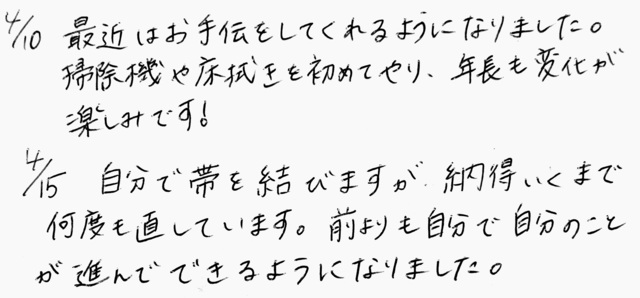 4/10 最近はお手伝をしてくれるようになりました。
掃除機や床拭きを初めてやり、年長も変化が
楽しみです!
4/15 自分で帯を結びますが、納得いくまで
何度も直しています。前よりも自分で自分のこと
が進んでできるようになりました。